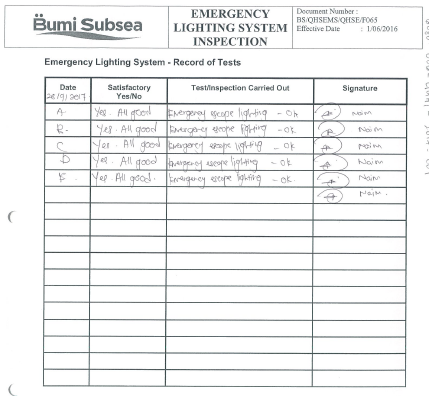 Bumi Subsea
EMERGENCY
LIGHTING SYSTEM
INSPECTION
Document Number :
BS/QHSEMS/QHSE/F065
Effective Date : 1/06/2016
Emergency Lighting System - Record of Tests
Date 28/9/2017 Satisfactory Yes/No Test/Inspection Carried Out Signature
A Yes. All good Emergency escape lighting - Ok Naim
B. Yes. All good Emergency escape lighting - Ok Naim
C Yes. All good Emergency escape lighting - Ok Naim
D Yes. All good Emergency escape lighting - Ok Naim
E. Yes. All good. Emergency escape lighting - Ok Naim
Naim.